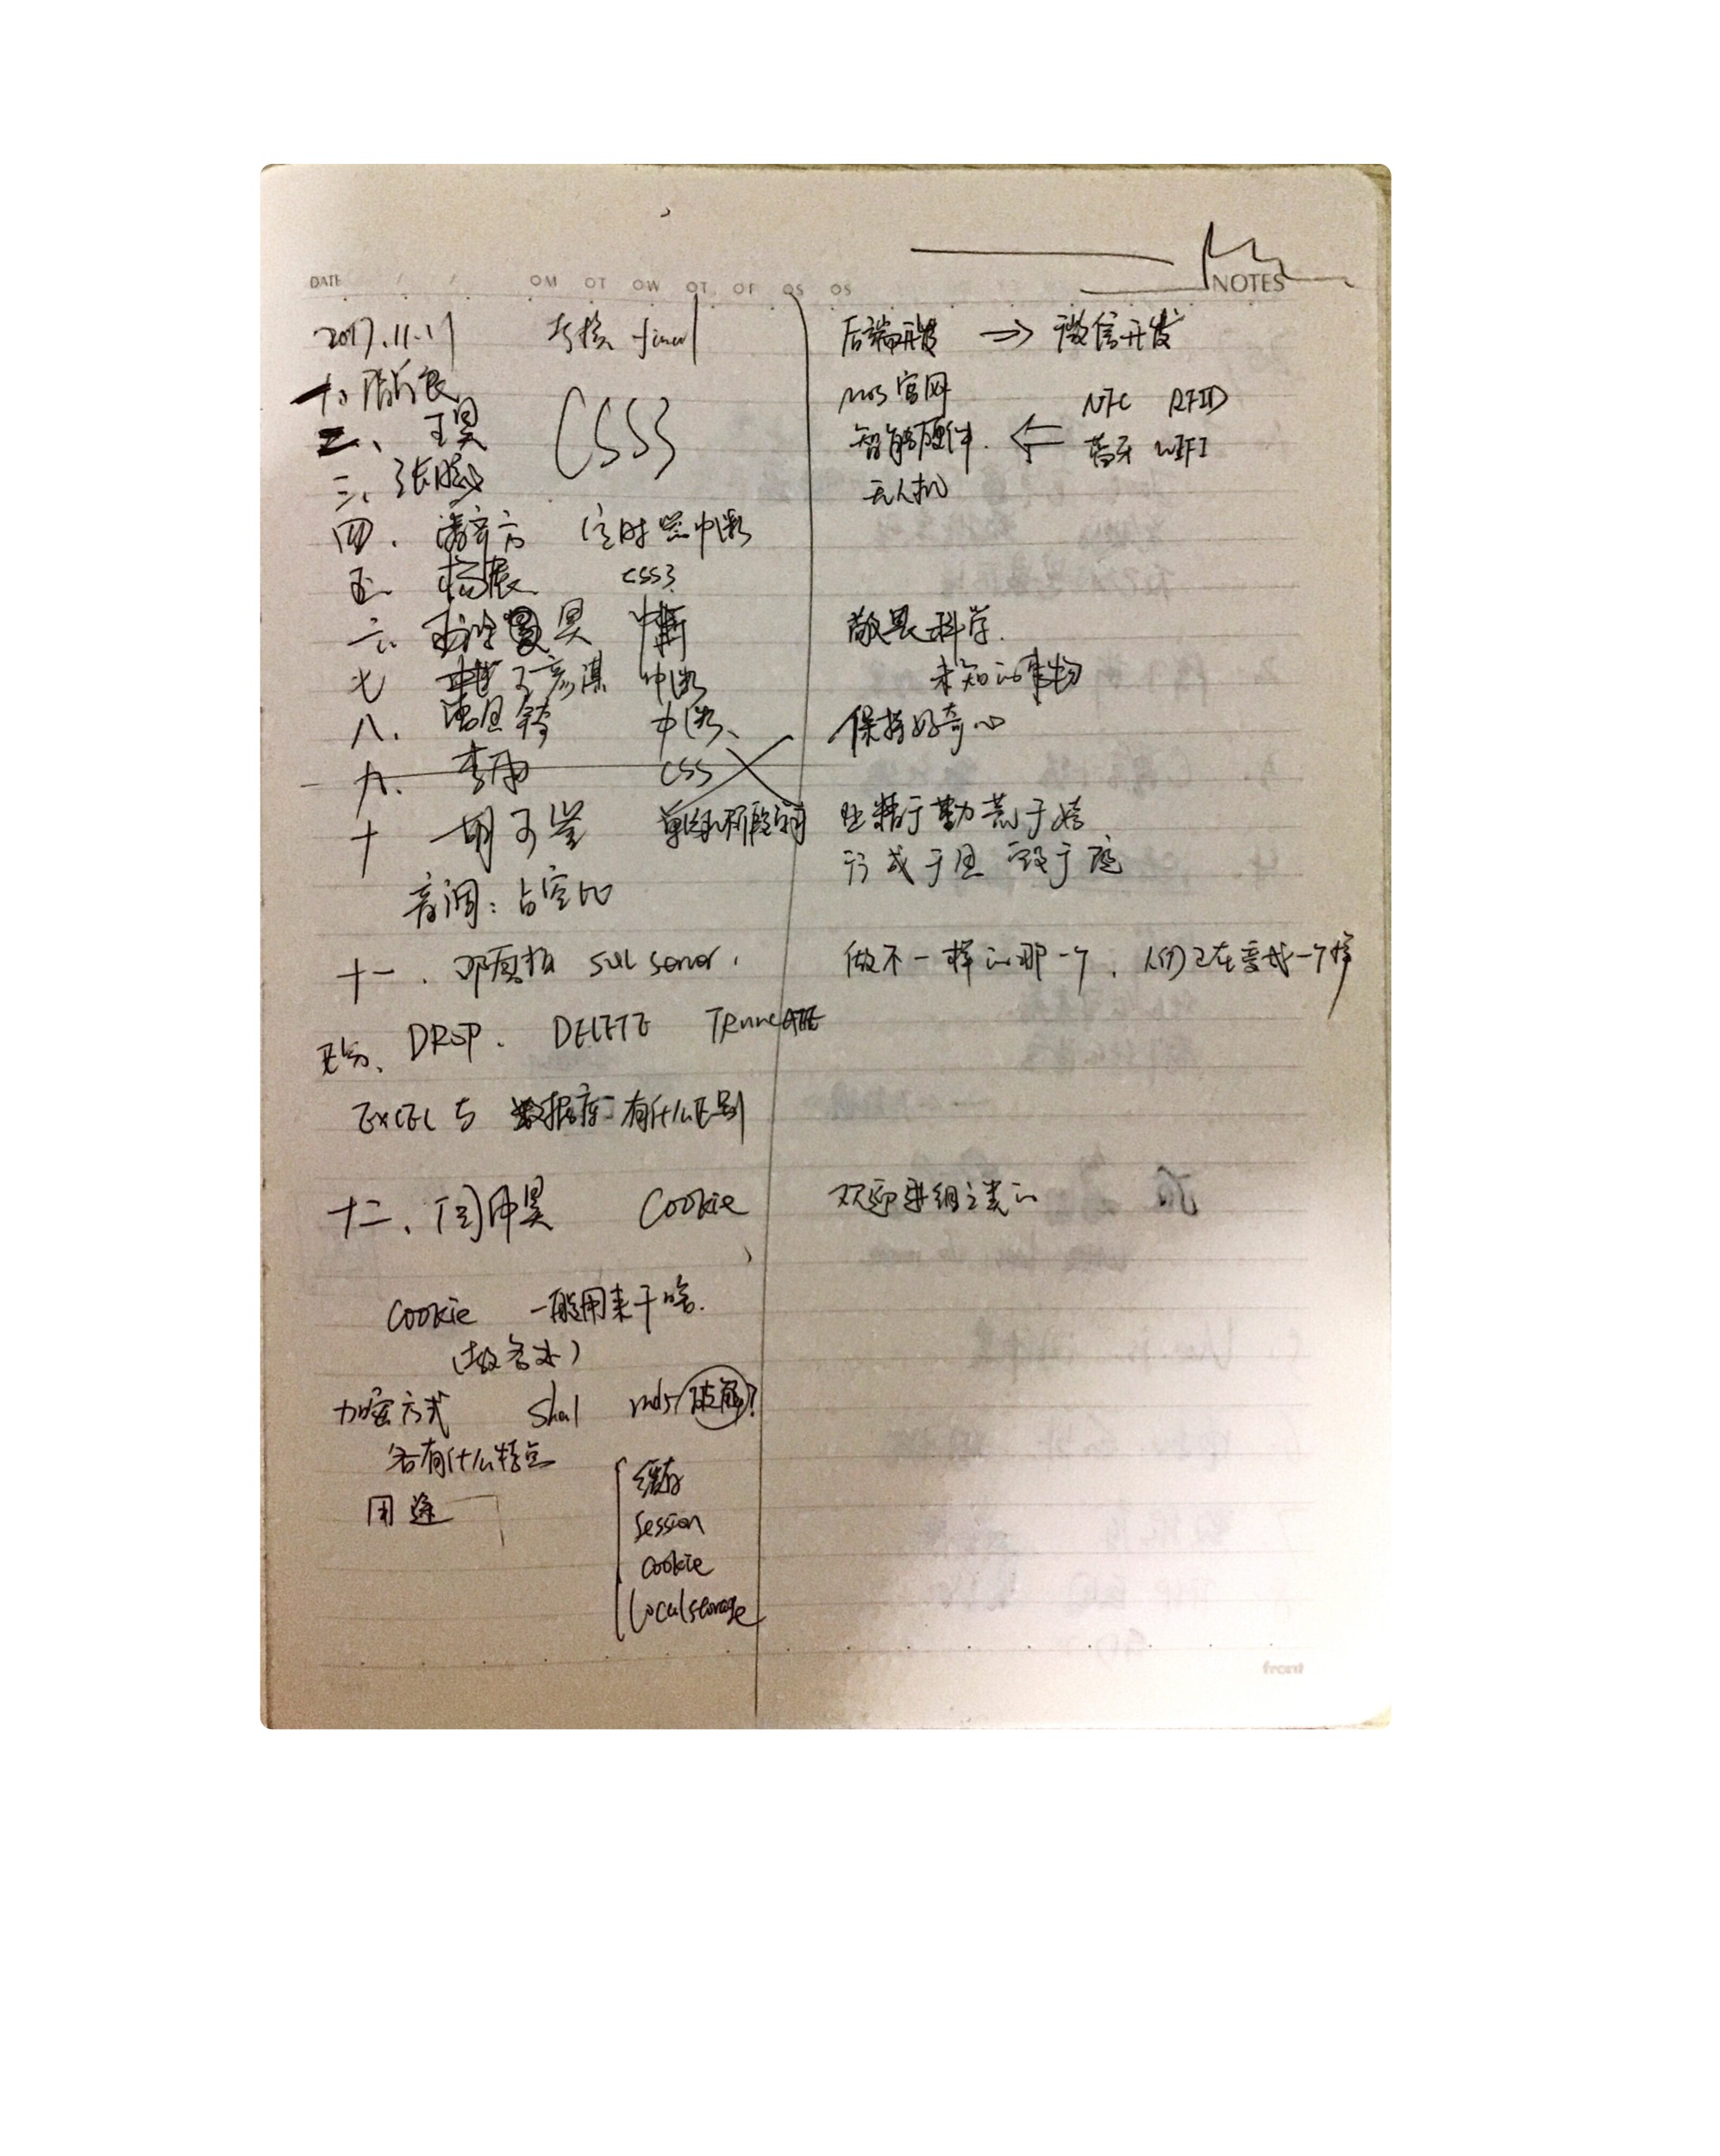 DATE / / OM OT OW OT OF OS OS
NOTES
2017.11.17 考核 final
二、王昊 CSS3
三、张
四. 潘 方 定时器中断
五 杨振 CSS3
六 昊 中断
七 王彦淇 中断
八. 中断、
九. 李丹 CSS
十 胡子
音调：占空比
十一. 邓 SQL server.
区分、DROP. DELETE TRuncATE
EXCEL 与 数据库 有什么区别
十二、闫申昊 Cookie
Cookie 一般用来干啥.
加密方式 Sha1 md5 破解？
各有什么特点
用途
缓存
session
cookie
Localstorage
后端开发 => 微信开发
官网 NFC RFID
智能硬件. <= 蓝牙 WIFI
无人机
敬畏科学.
未知的事物
保持好奇心
业精于勤 荒于嬉
行成于思 毁于随
做不一样的那一个. 人们正在变成一个样
欢迎进组之类的
front